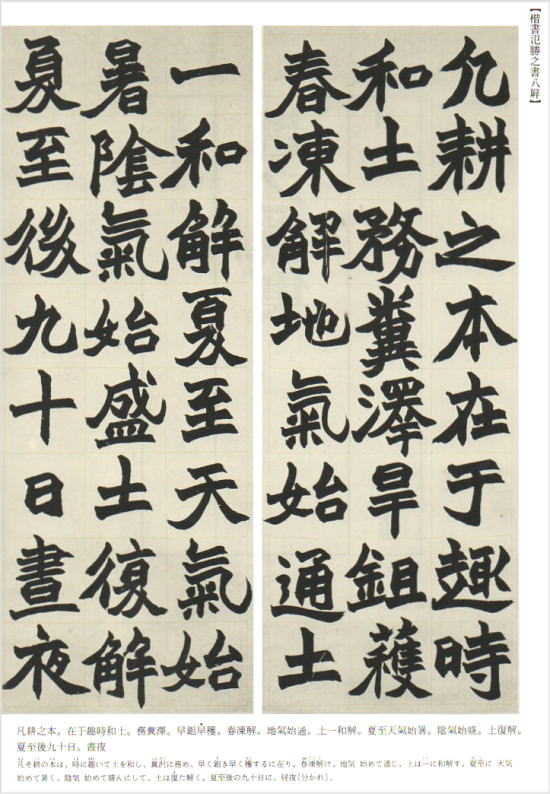 【楷書氾勝之書八屏】
凡耕之本在于趣時
和土務糞澤旱鉏穫
春凍解地氣始通土
一和解夏至天氣始
暑陰氣始盛土復解
夏至後九十日晝夜
凡耕之本。在于趣時和土。務糞澤。早鉏早穫。春凍解。地氣始通。土一和解。夏至天氣始暑。陰氣始盛。土復解。
夏至後九十日。晝夜
凡そ耕の本は、時に趣いて土を和し、糞沢に務め、早く鉏き早く穫するに在り、春凍解け、地気 始めて通じ、土は一に和解す。夏至に 天気
始めて暑く、陰気 始めて盛んにして、土は復た解く。夏至後の九十日に、昼夜(分かれ)、